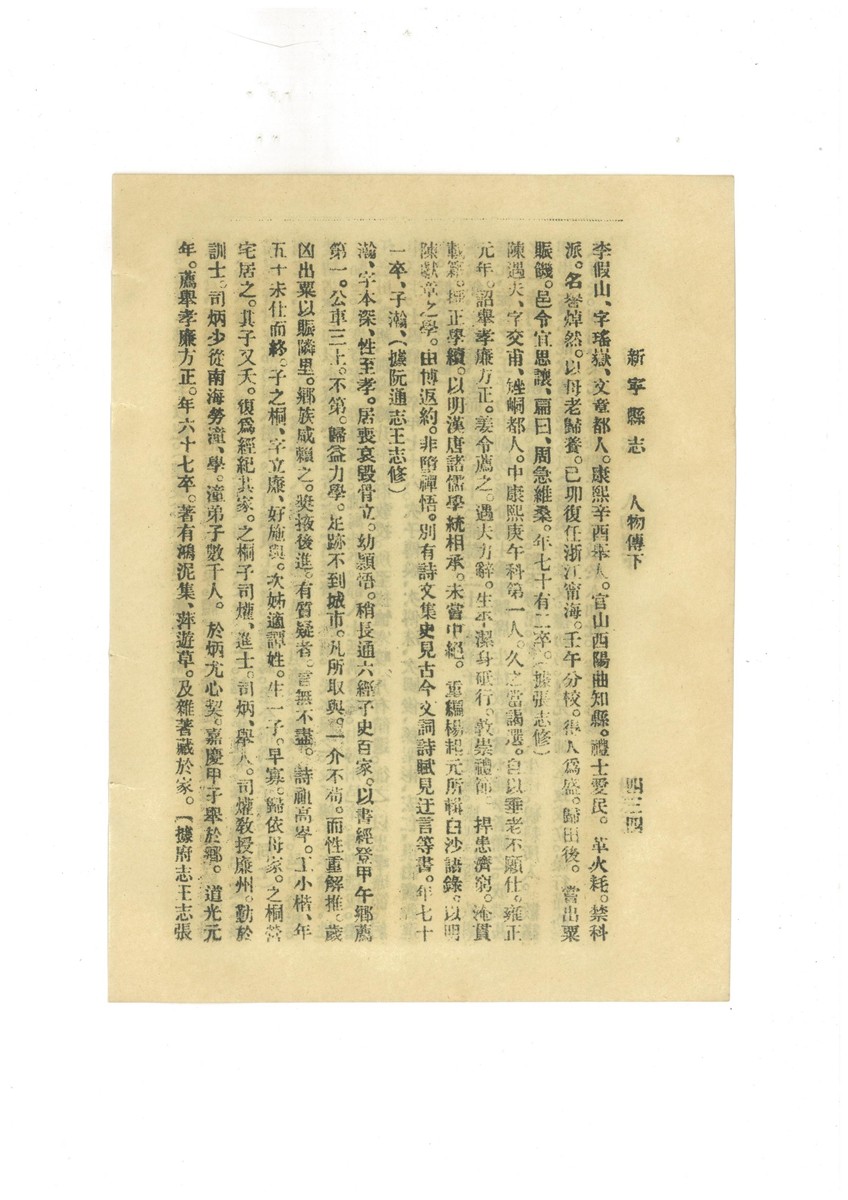 新寧縣志　人物傳下　四三四
李假山、字瑤嶽、文章都人。康熙辛酉舉人。官山西陽曲知縣。禮士愛民。革火耗。禁科
派。名譽焯然。以母老歸養。己卯復任浙江甯海。壬午分校。得人爲盛。歸田後。嘗出粟
賑饑。邑令宜思讓、扁曰、周急維桑。年七十有二卒。（據張志修）
陳遇夫、字交甫、㛗峒都人。中康熙庚午科第一人。久之當謁選。自以垂老不願仕。雍正
元年。詔舉孝廉方正。姜令薦之。遇夫力辭。生平潔身砥行。敦崇禮節。捍患濟窮。淹貫
載籍。正學續。以明漢唐諸儒學統相承。未嘗中絕。重編楊起元所輯白沙語錄。以明
陳獻章之學。由博返約。非墮禪悟。別有詩文集史見古今文詞詩賦見迂言等書。年七十
一卒、子瀚、（據阮通志王志修）
瀚、字本深、性至孝。居喪哀毀骨立。幼穎悟。稍長通六經子史百家。以書經登甲午鄉薦
第一。公車三上。不第。歸益力學。足跡不到城市。凡所取與。一介不苟。而性重解推。歲
凶出粟以賑隣里。鄉族咸賴之。奬掖後進。有質疑者。言無不盡。詩祖高岑。工小楷、年
五十未仕而終。子之桐、字立廉、好施與。次姊適譚姓。生一子。早寡。歸依母家。之桐營
宅居之。其子又夭。復爲經紀其家。之桐子司爟、進士。司炳、舉人。司爟敎授廉州。勤於
訓士。司炳少從南海勞潼、學。潼弟子數千人。於炳尤心契。嘉慶甲子舉於鄉。道光元
年。薦舉孝廉方正。年六十七卒。著有鴻泥集、萍遊草。及雜著藏於家。（據府志王志張